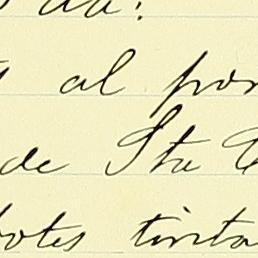 al por
de Sta
botes tinta